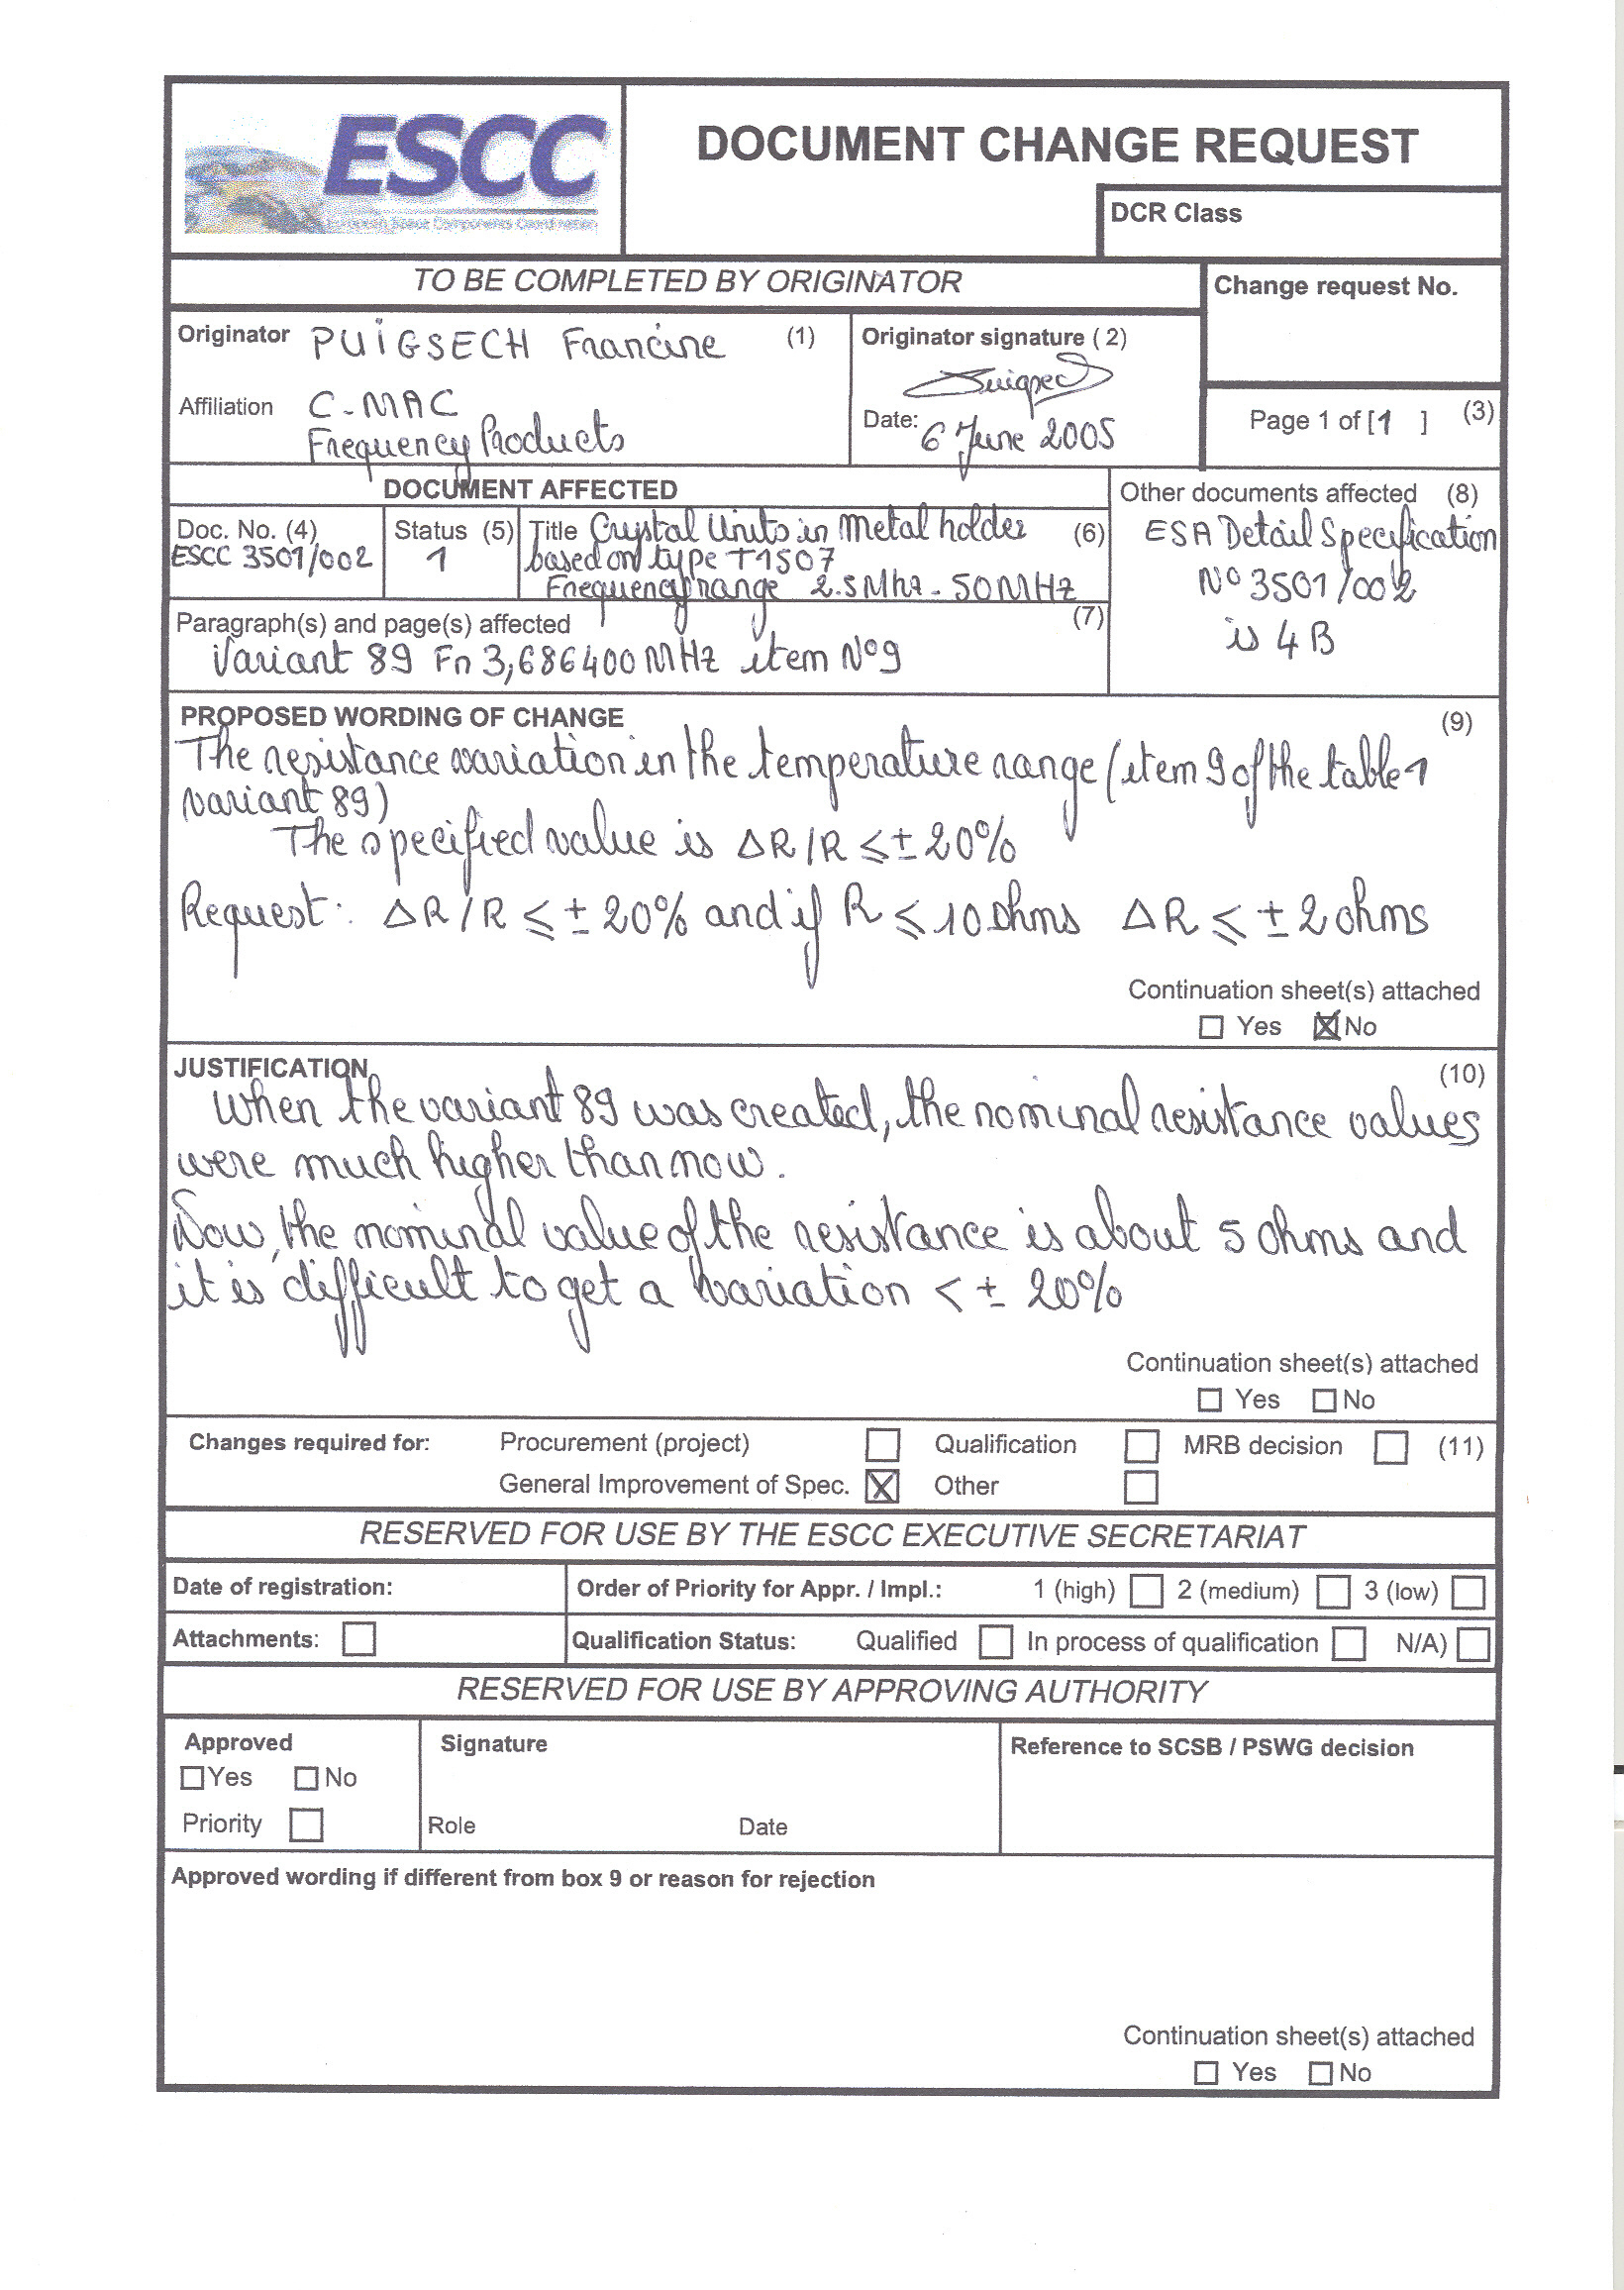 ESCC
DOCUMENT CHANGE REQUEST
DCR Class
TO BE COMPLETED BY ORIGINATOR
Change request No.
Originator PUIGSECH Francine (1)
Originator signature ( 2)
Affiliation C-MAC
Frequency Products
Date: 6 June 2005
Page 1 of [1 ] (3)
DOCUMENT AFFECTED
Other documents affected (8)
ESA Detail Specification
N° 3501/002
is 4B
Doc. No. (4)
ESCC 3501/002
Status (5)
1
Title Crystal Units in Metal holder (6)
based on type T1507
Frequency range 2.5Mhz - 50MHz
Paragraph(s) and page(s) affected (7)
Variant 89 Fn 3,686400MHz item N°9
PROPOSED WORDING OF CHANGE (9)
The resistance variation in the temperature range (item 9 of the table 1
variant 89)
The specified value is ΔR/R ≤ ± 20%
Request: ΔR/R ≤ ± 20% and if R ≤ 10 ohms ΔR ≤ ± 2 ohms
Continuation sheet(s) attached
Yes No
JUSTIFICATION (10)
When the variant 89 was created, the nominal resistance values
were much higher than now.
Now, the nominal value of the resistance is about 5 ohms and
it is difficult to get a variation < ± 20%
Continuation sheet(s) attached
Yes No
Changes required for: Procurement (project) Qualification MRB decision (11)
General Improvement of Spec. Other
RESERVED FOR USE BY THE ESCC EXECUTIVE SECRETARIAT
Date of registration: Order of Priority for Appr. / Impl.: 1 (high) 2 (medium) 3 (low)
Attachments: Qualification Status: Qualified In process of qualification N/A)
RESERVED FOR USE BY APPROVING AUTHORITY
Approved
Yes No
Priority
Signature
Role Date
Reference to SCSB / PSWG decision
Approved wording if different from box 9 or reason for rejection
Continuation sheet(s) attached
Yes No